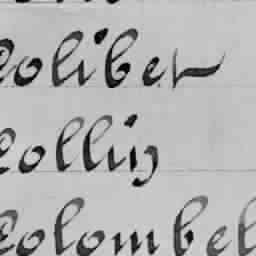 Coliber
Collin
Colombel